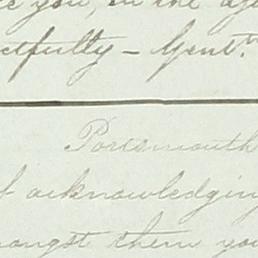 you, in the
ctfully - Gent.n
Portsmouth
f acknowledging
mongst them you